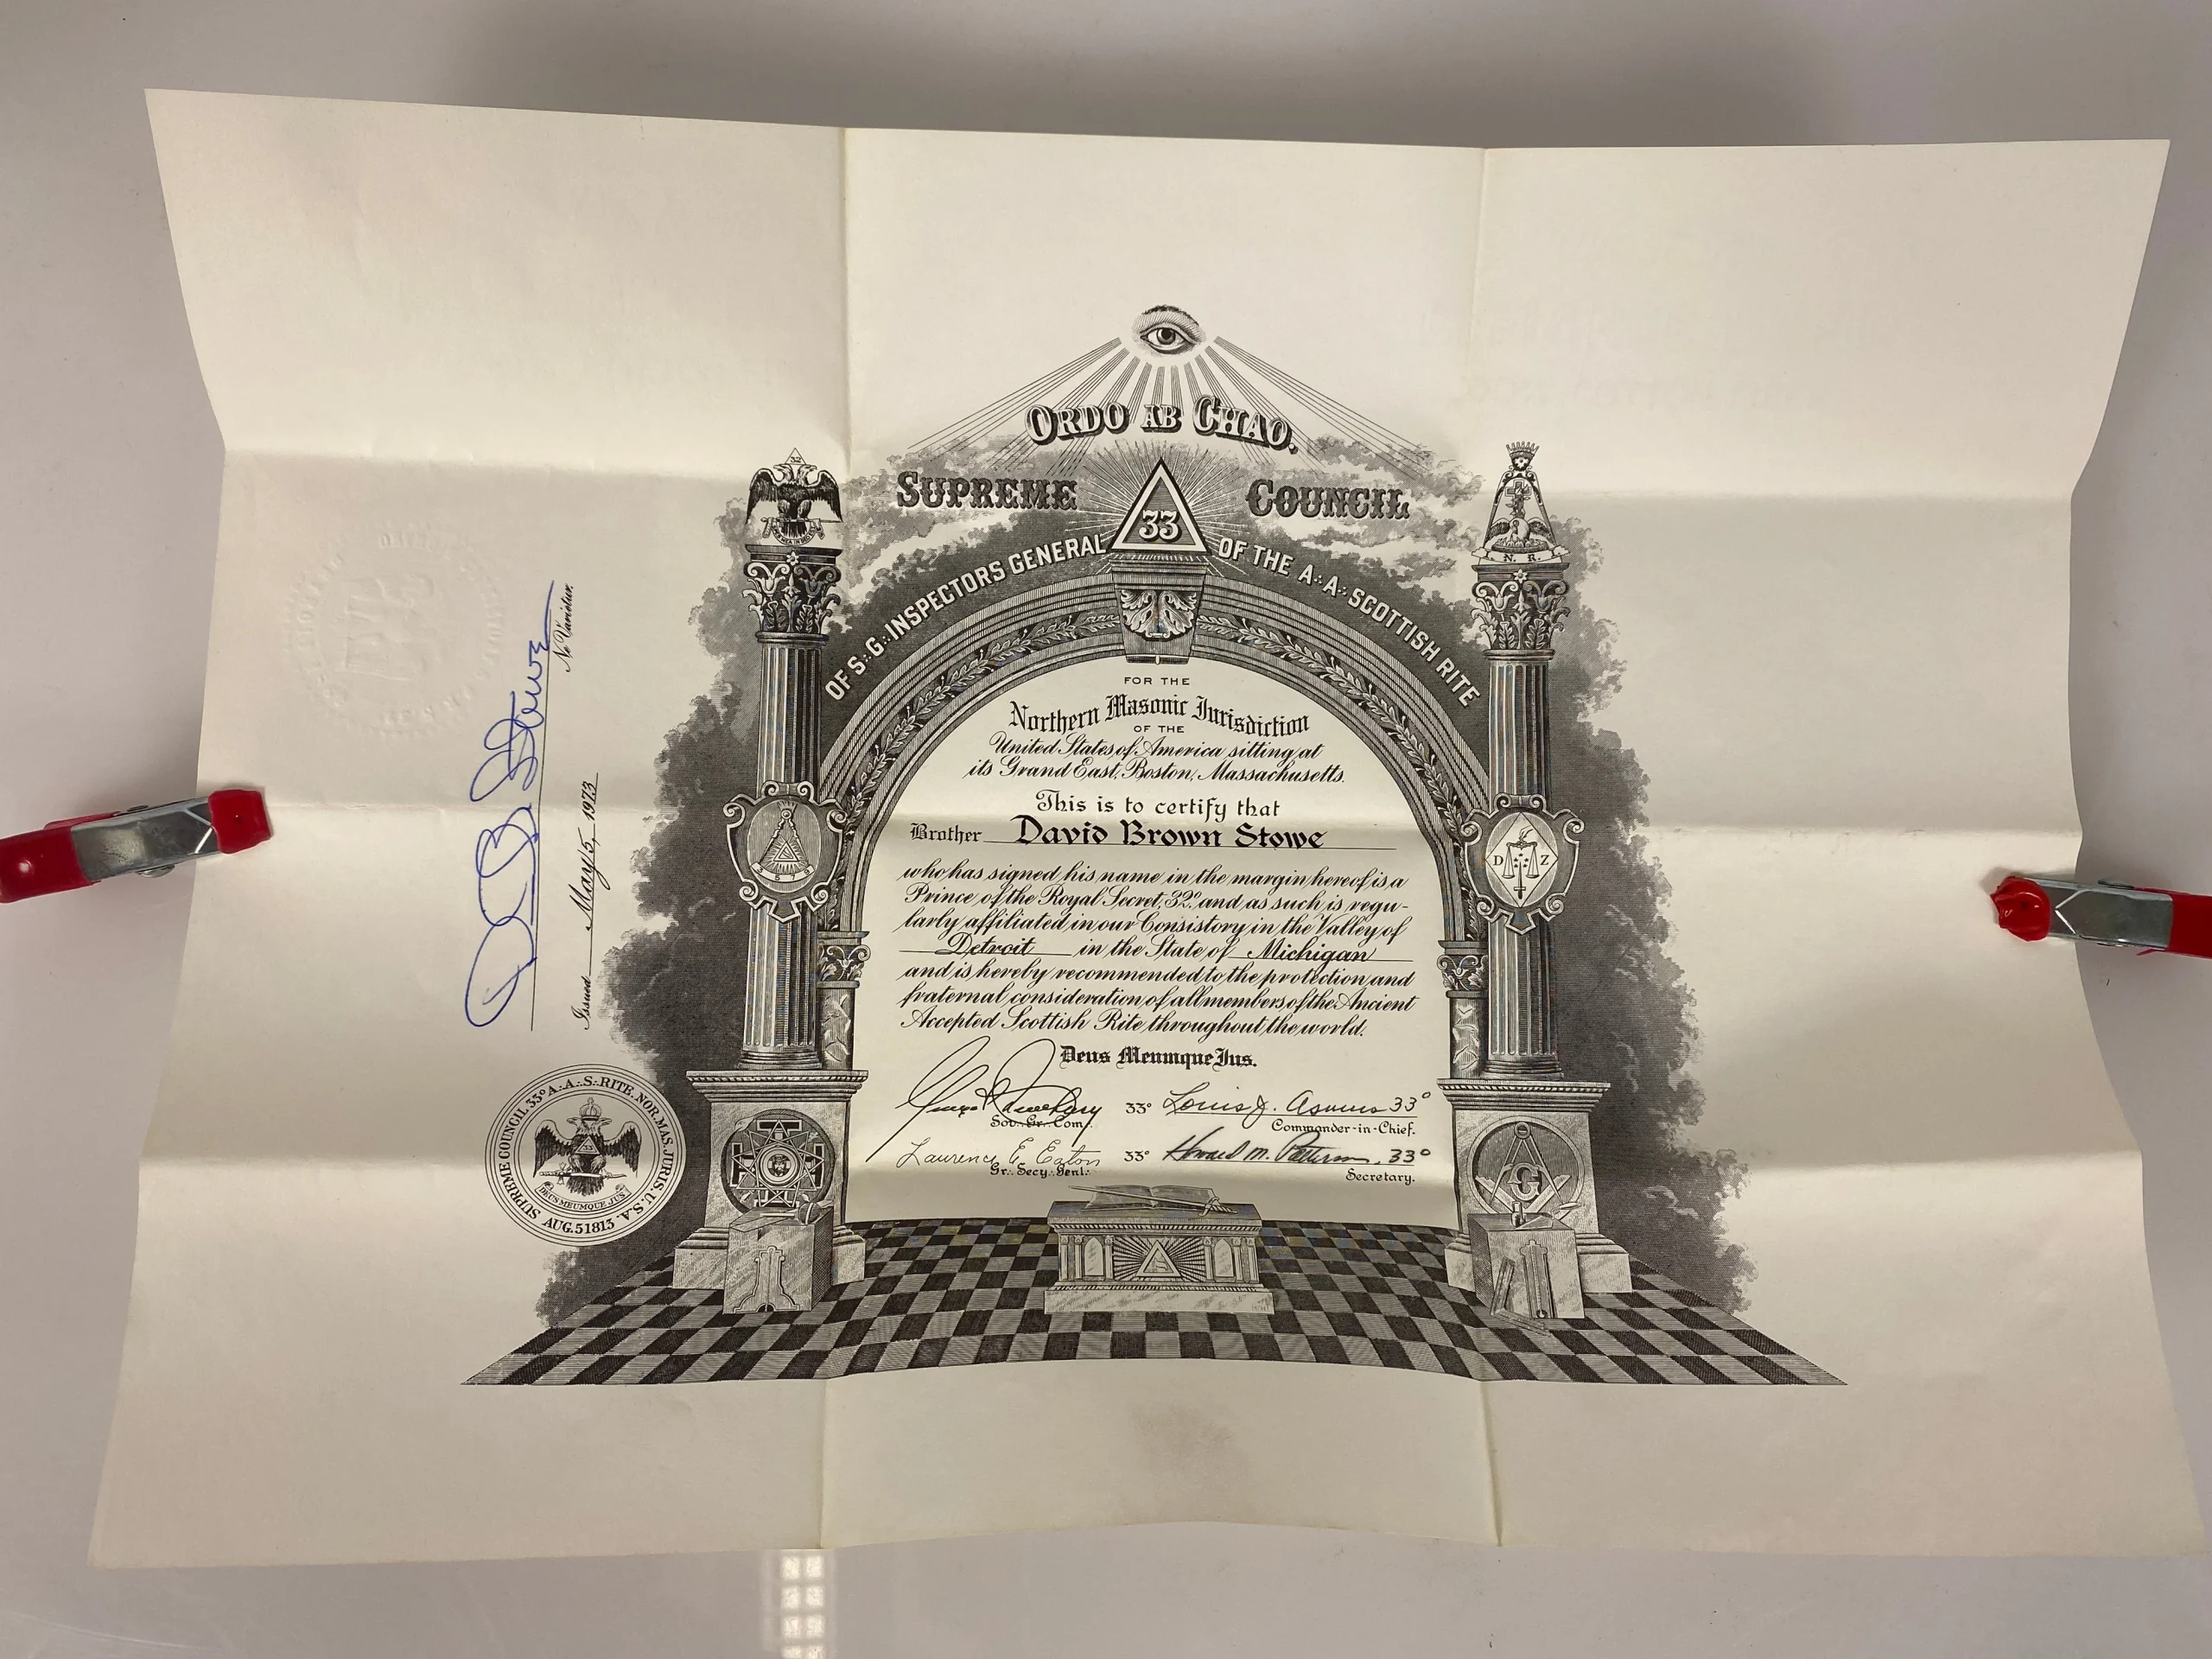 ORDO AB CHAO.
SUPREME COUNCIL
33
OF S∴G∴INSPECTORS GENERAL OF THE A∴A∴SCOTTISH RITE
FOR THE
Northern Masonic Jurisdiction
OF THE
United States of America sitting at
its Grand East, Boston, Massachusetts.
This is to certify that
Brother David Brown Stowe
who has signed his name in the margin hereof is a
Prince of the Royal Secret, 32° and as such is regu-
larly affiliated in our Consistory in the Valley of
Detroit in the State of Michigan
and is hereby recommended to the protection and
fraternal consideration of all members of the Ancient
Accepted Scottish Rite throughout the world.
Deus Meumque Jus.
33° Louis J. Asmus 33°
Sov∴Gr∴Com∴ Commander-in-Chief.
Laurence E. Eaton 33° Howard M. Patterson, 33°
Gr∴Secy∴Genl∴ Secretary.
32
N. R.
D Z
G
D B Stowe
Ne Varietur.
Issued May 5, 1973
SUPREME COUNCIL 33° A∴A∴S∴RITE. NOR. MAS. JURIS. U.S.A.
DEUS MEUMQUE JUS
AUG. 5 1813